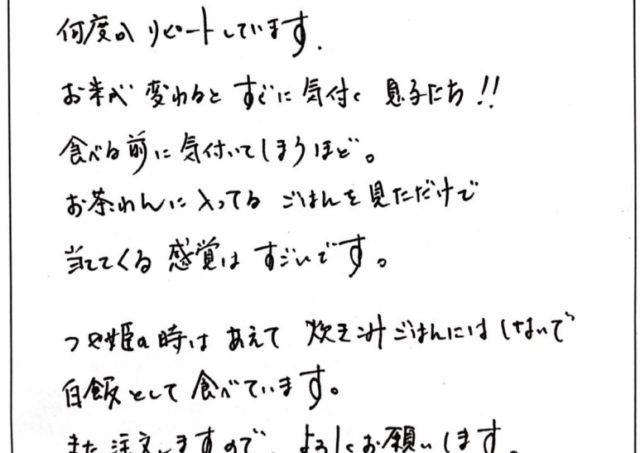 何度かリピートしています.
お米が変わるとすぐに気付く息子たち!!
食べる前に気付いてしまうほど。
お茶わんに入ってるごはんを見ただけで
当ててくる感覚はすごいです。
つや姫の時はあえて炊き込みごはんにはしないで
白飯として食べています。
また注文しますので、よろしくお願いします。